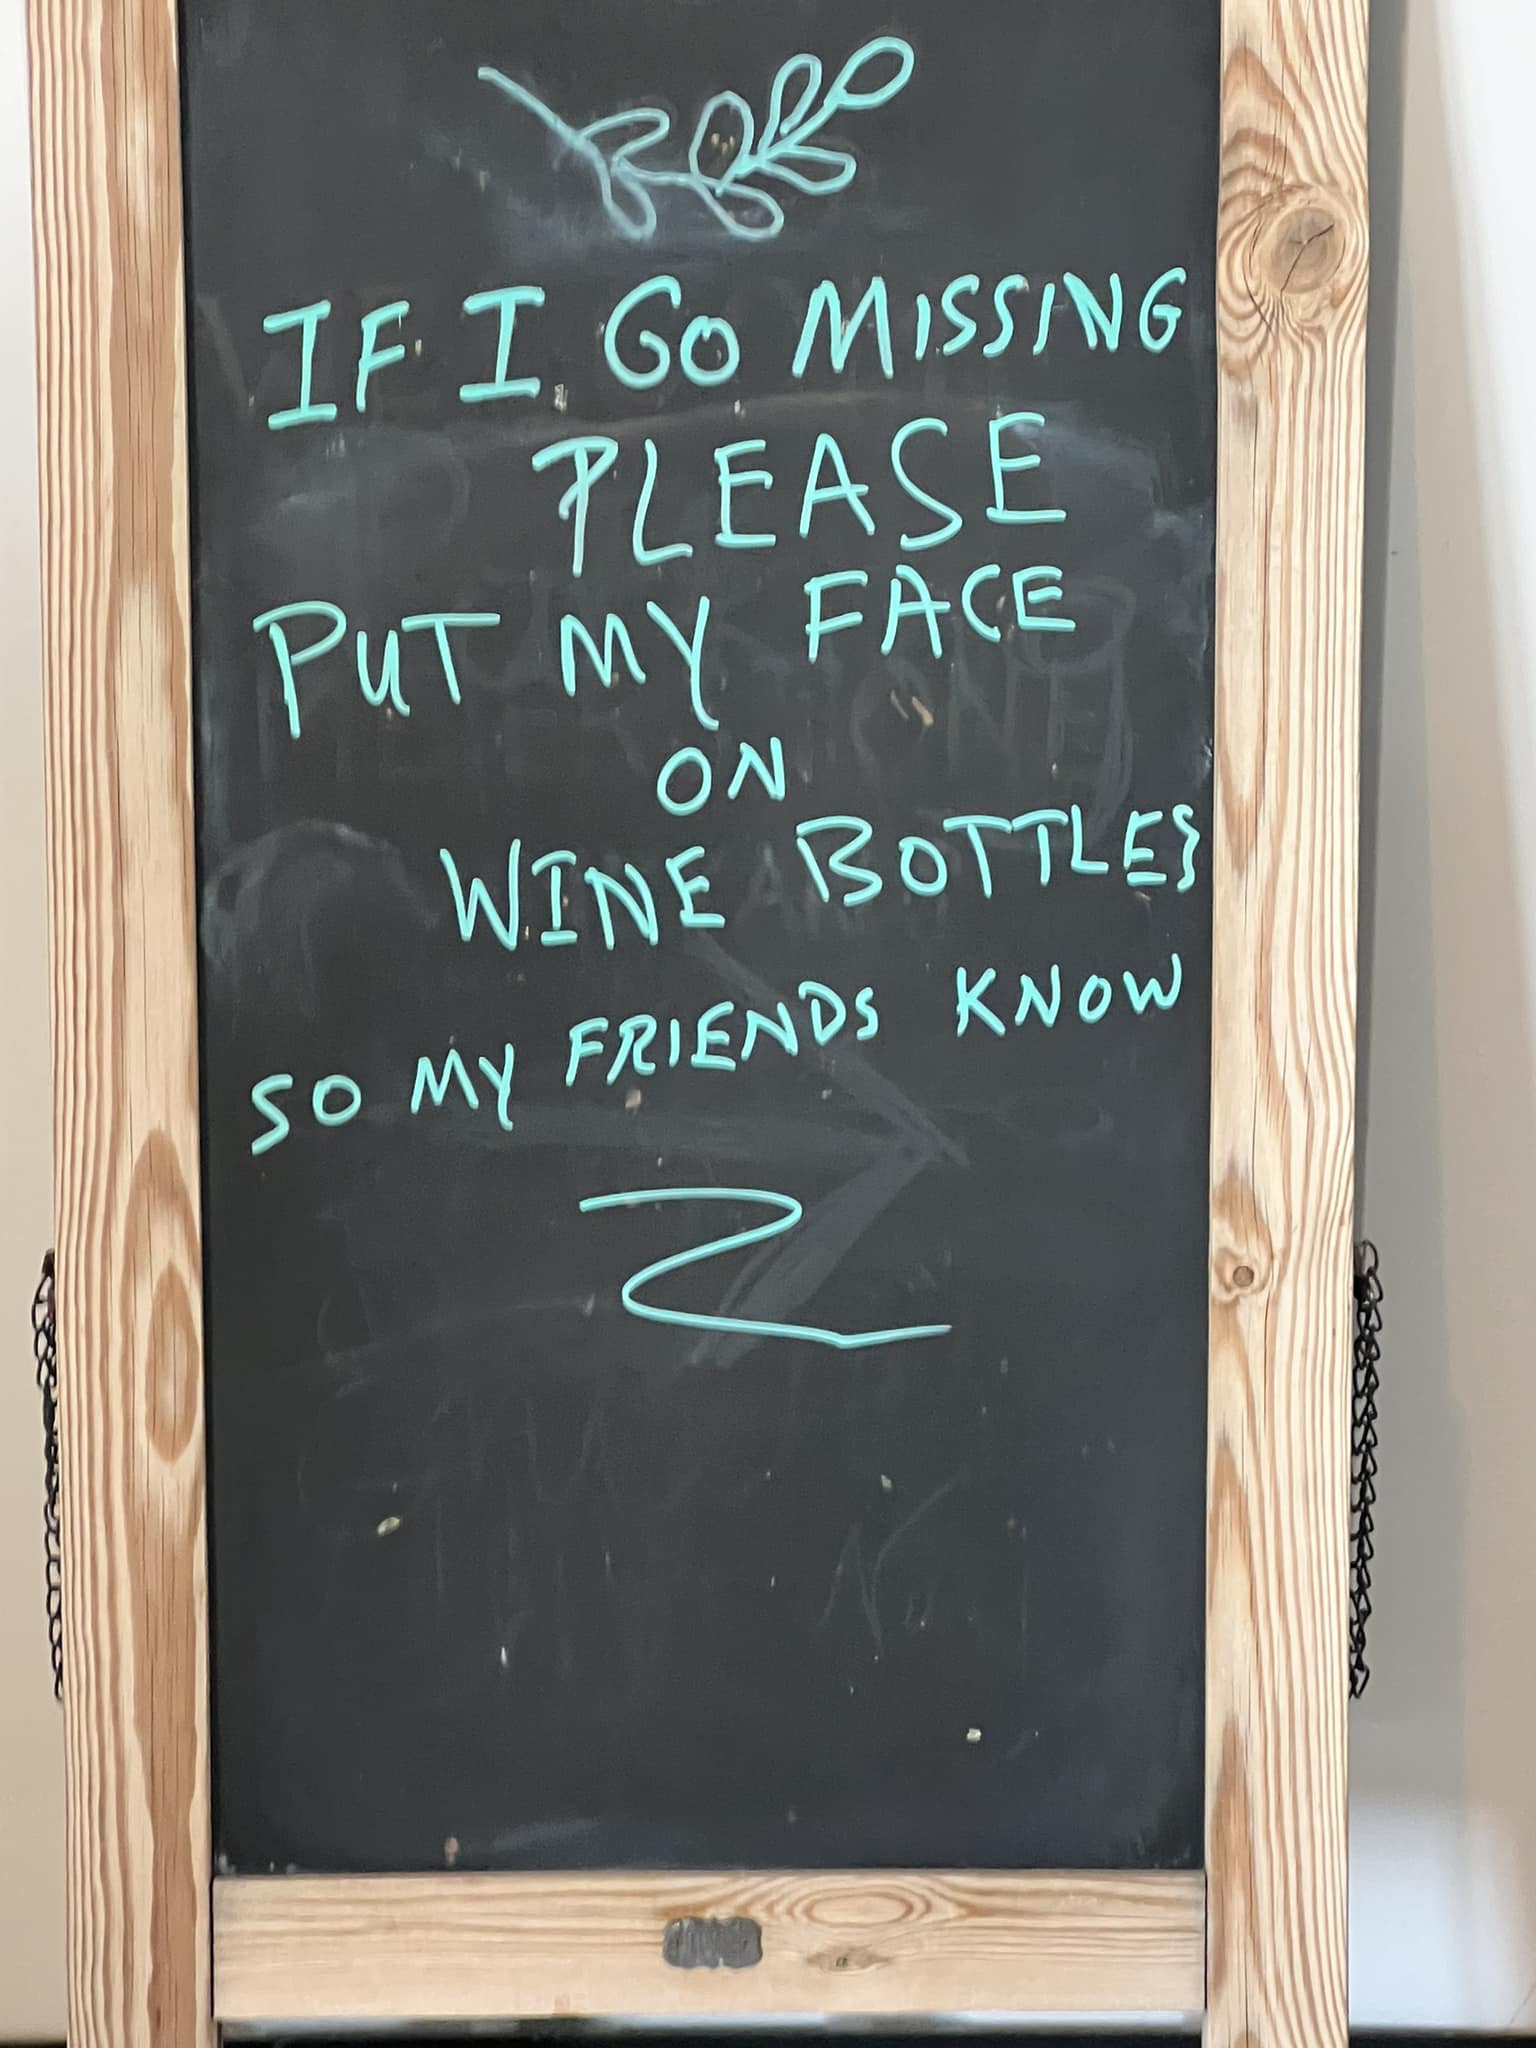 IF I GO MISSING
PLEASE
PUT MY FACE
ON
WINE BOTTLES
SO MY FRIENDS KNOW